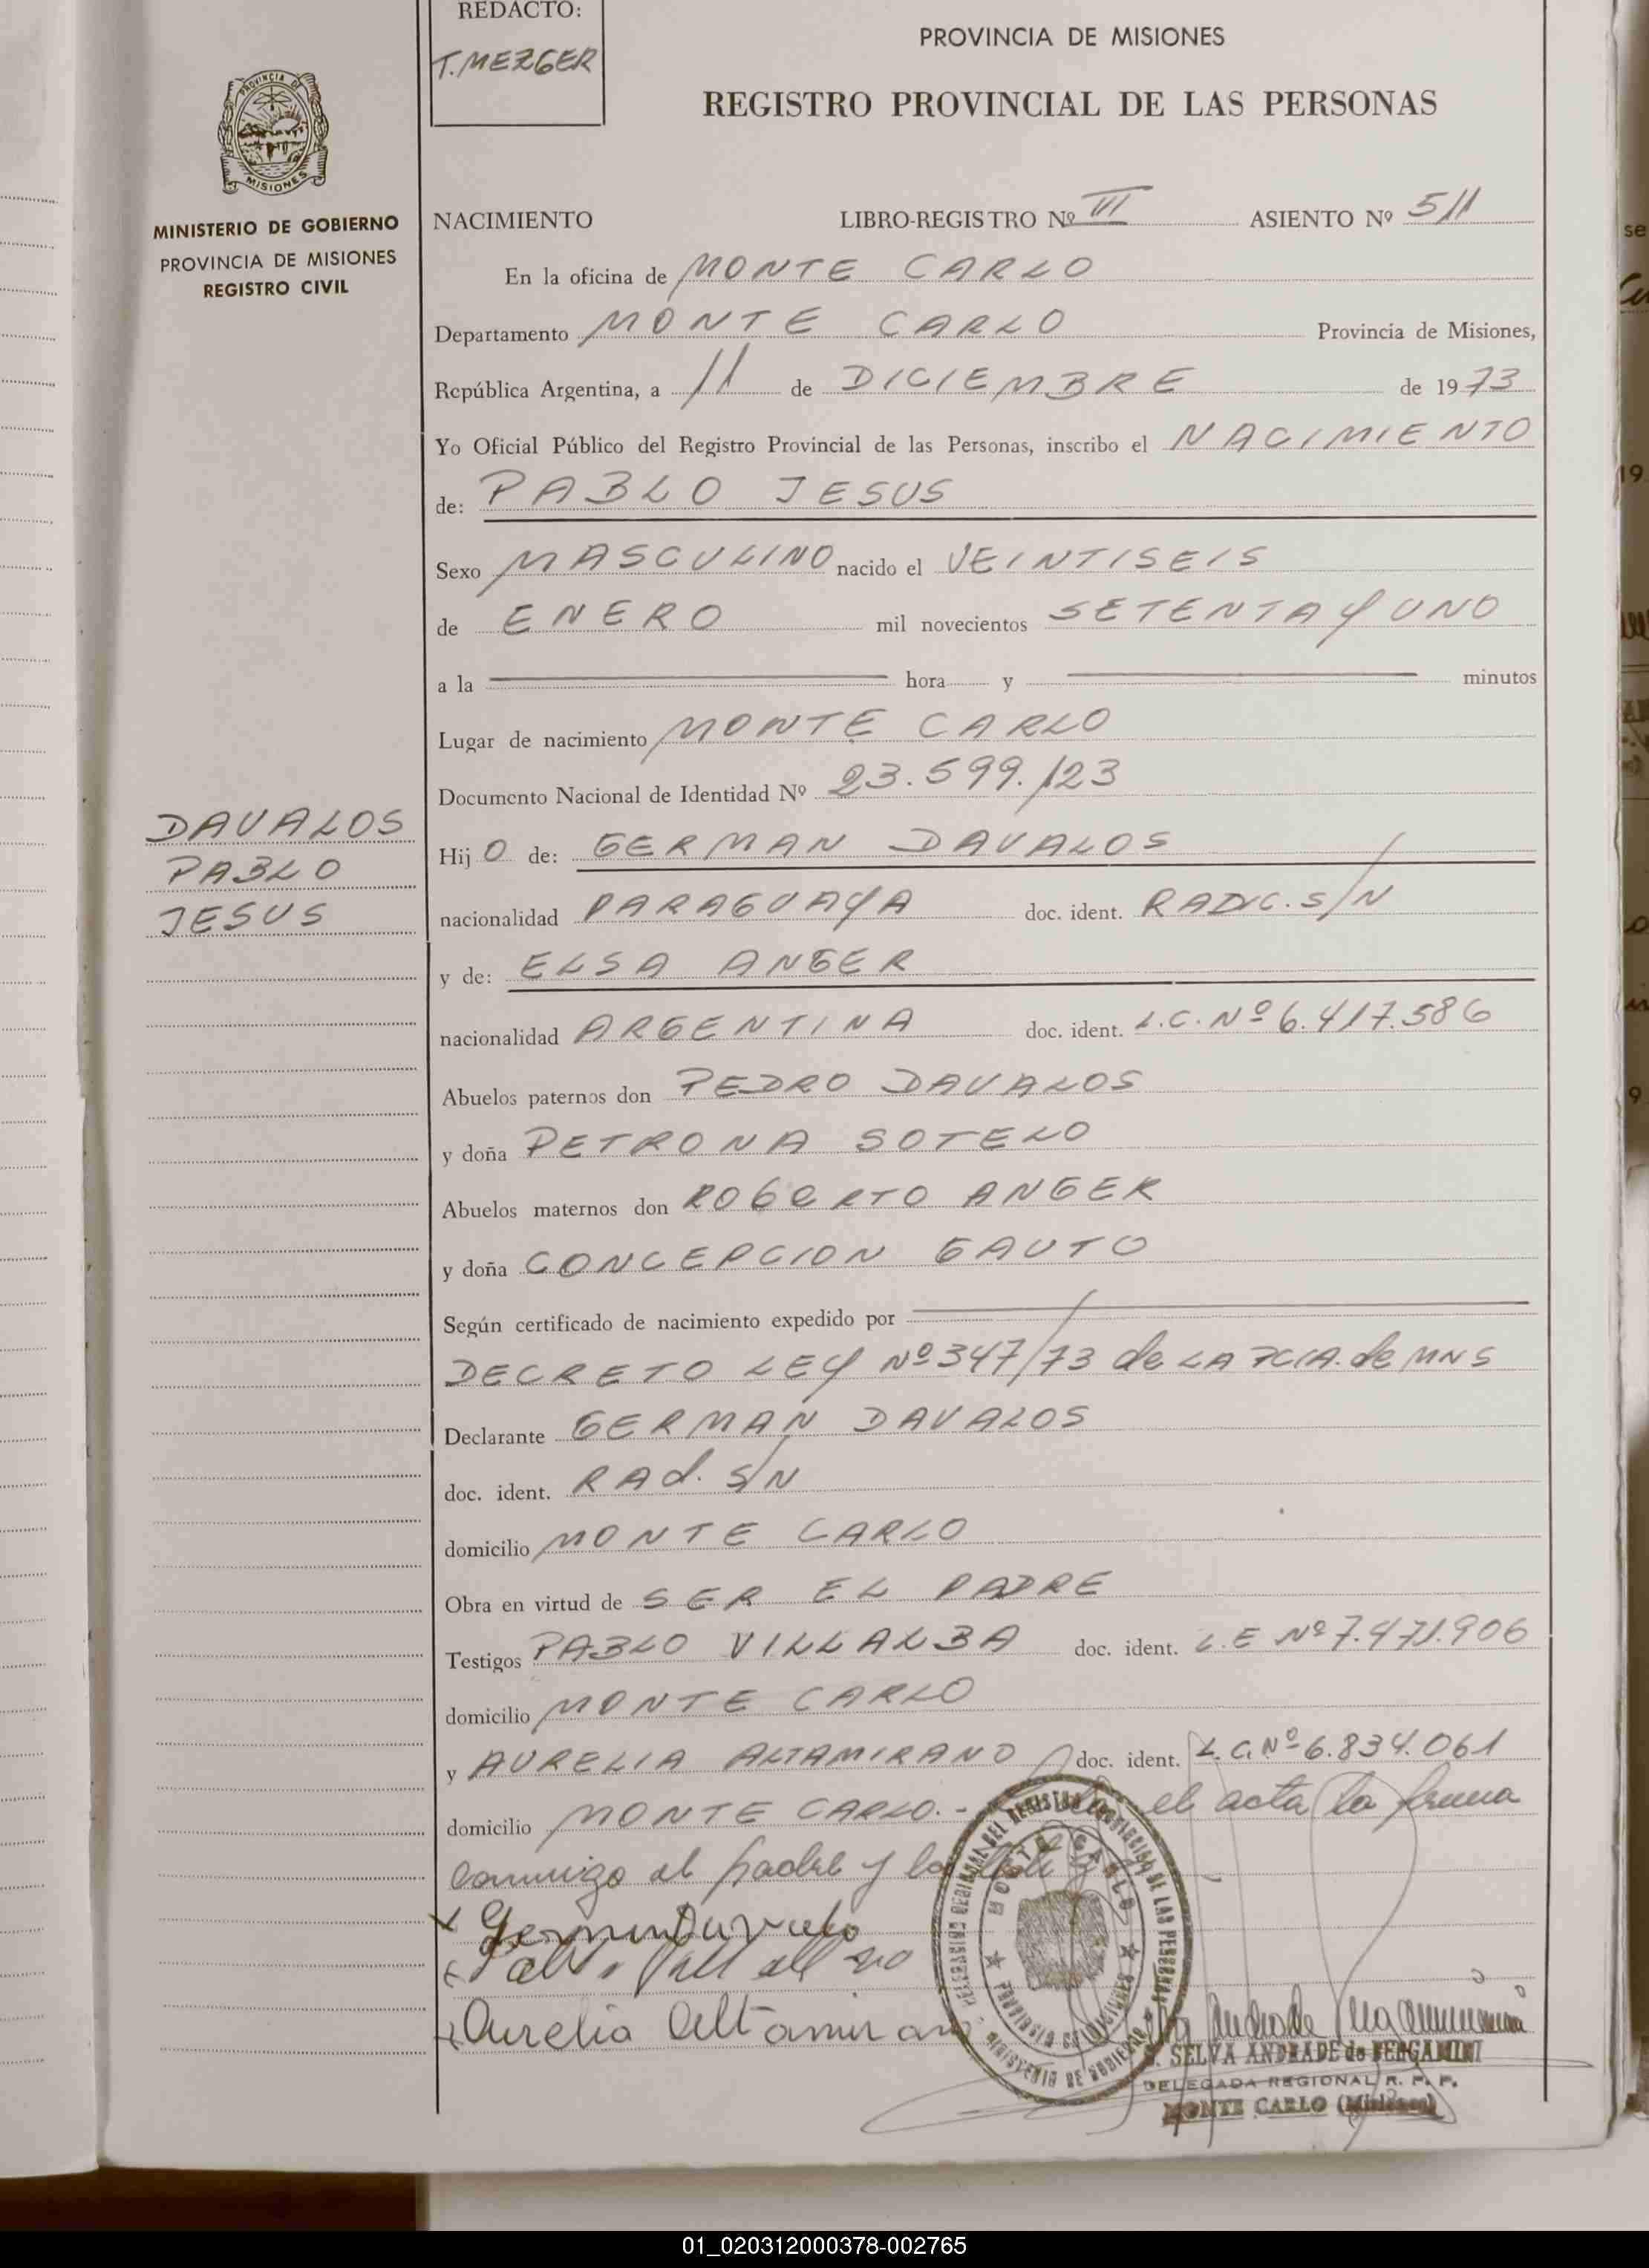 REDACTO:
T. MEZGER
PROVINCIA DE MISIONES
REGISTRO PROVINCIAL DE LAS PERSONAS
PROVINCIA DE
MISIONES
MINISTERIO DE GOBIERNO
PROVINCIA DE MISIONES
REGISTRO CIVIL
NACIMIENTO LIBRO-REGISTRO Nº VI ASIENTO Nº 511
En la oficina de MONTE CARLO
Departamento MONTE CARLO Provincia de Misiones,
República Argentina, a 11 de DICIEMBRE de 1973
Yo Oficial Público del Registro Provincial de las Personas, inscribo el NACIMIENTO
de: PABLO JESUS
Sexo MASCULINO nacido el VEINTISEIS
de ENERO mil novecientos SETENTA Y UNO
a la hora y minutos
Lugar de nacimiento MONTE CARLO
Documento Nacional de Identidad Nº 23.599.123
DAVALOS
PABLO
JESUS
Hijo de: GERMAN DAVALOS
nacionalidad PARAGUAYA doc. ident. RADIC. S/N
y de: ELSA ANGER
nacionalidad ARGENTINA doc. ident. L.C. Nº 6.417.586
Abuelos paternos don PEDRO DAVALOS
y doña PETRONA SOTELO
Abuelos maternos don ROBERTO ANGER
y doña CONCEPCION GAUTO
Según certificado de nacimiento expedido por
DECRETO LEY Nº 347/73 de LA PCIA. de MNS
Declarante GERMAN DAVALOS
doc. ident. RAd. S/N
domicilio MONTE CARLO
Obra en virtud de SER EL PADRE
Testigos PABLO VILLALBA doc. ident. L.E Nº 7.471.906
domicilio MONTE CARLO
y AURELIA ALTAMIRANO doc. ident. L.C. Nº 6.834.061
domicilio MONTE CARLO.- el acta la firma
conmigo el padre y los
Aurelia Altamirano
MONTE CARLO
PROVINCIA DE MISIONES
MINISTERIO DE GOBIERNO
S. SELVA ANDRADE de BERGAMINI
DELEGADA REGIONAL R. P. P.
MONTE CARLO (Misiones)
01_020312000378-002765